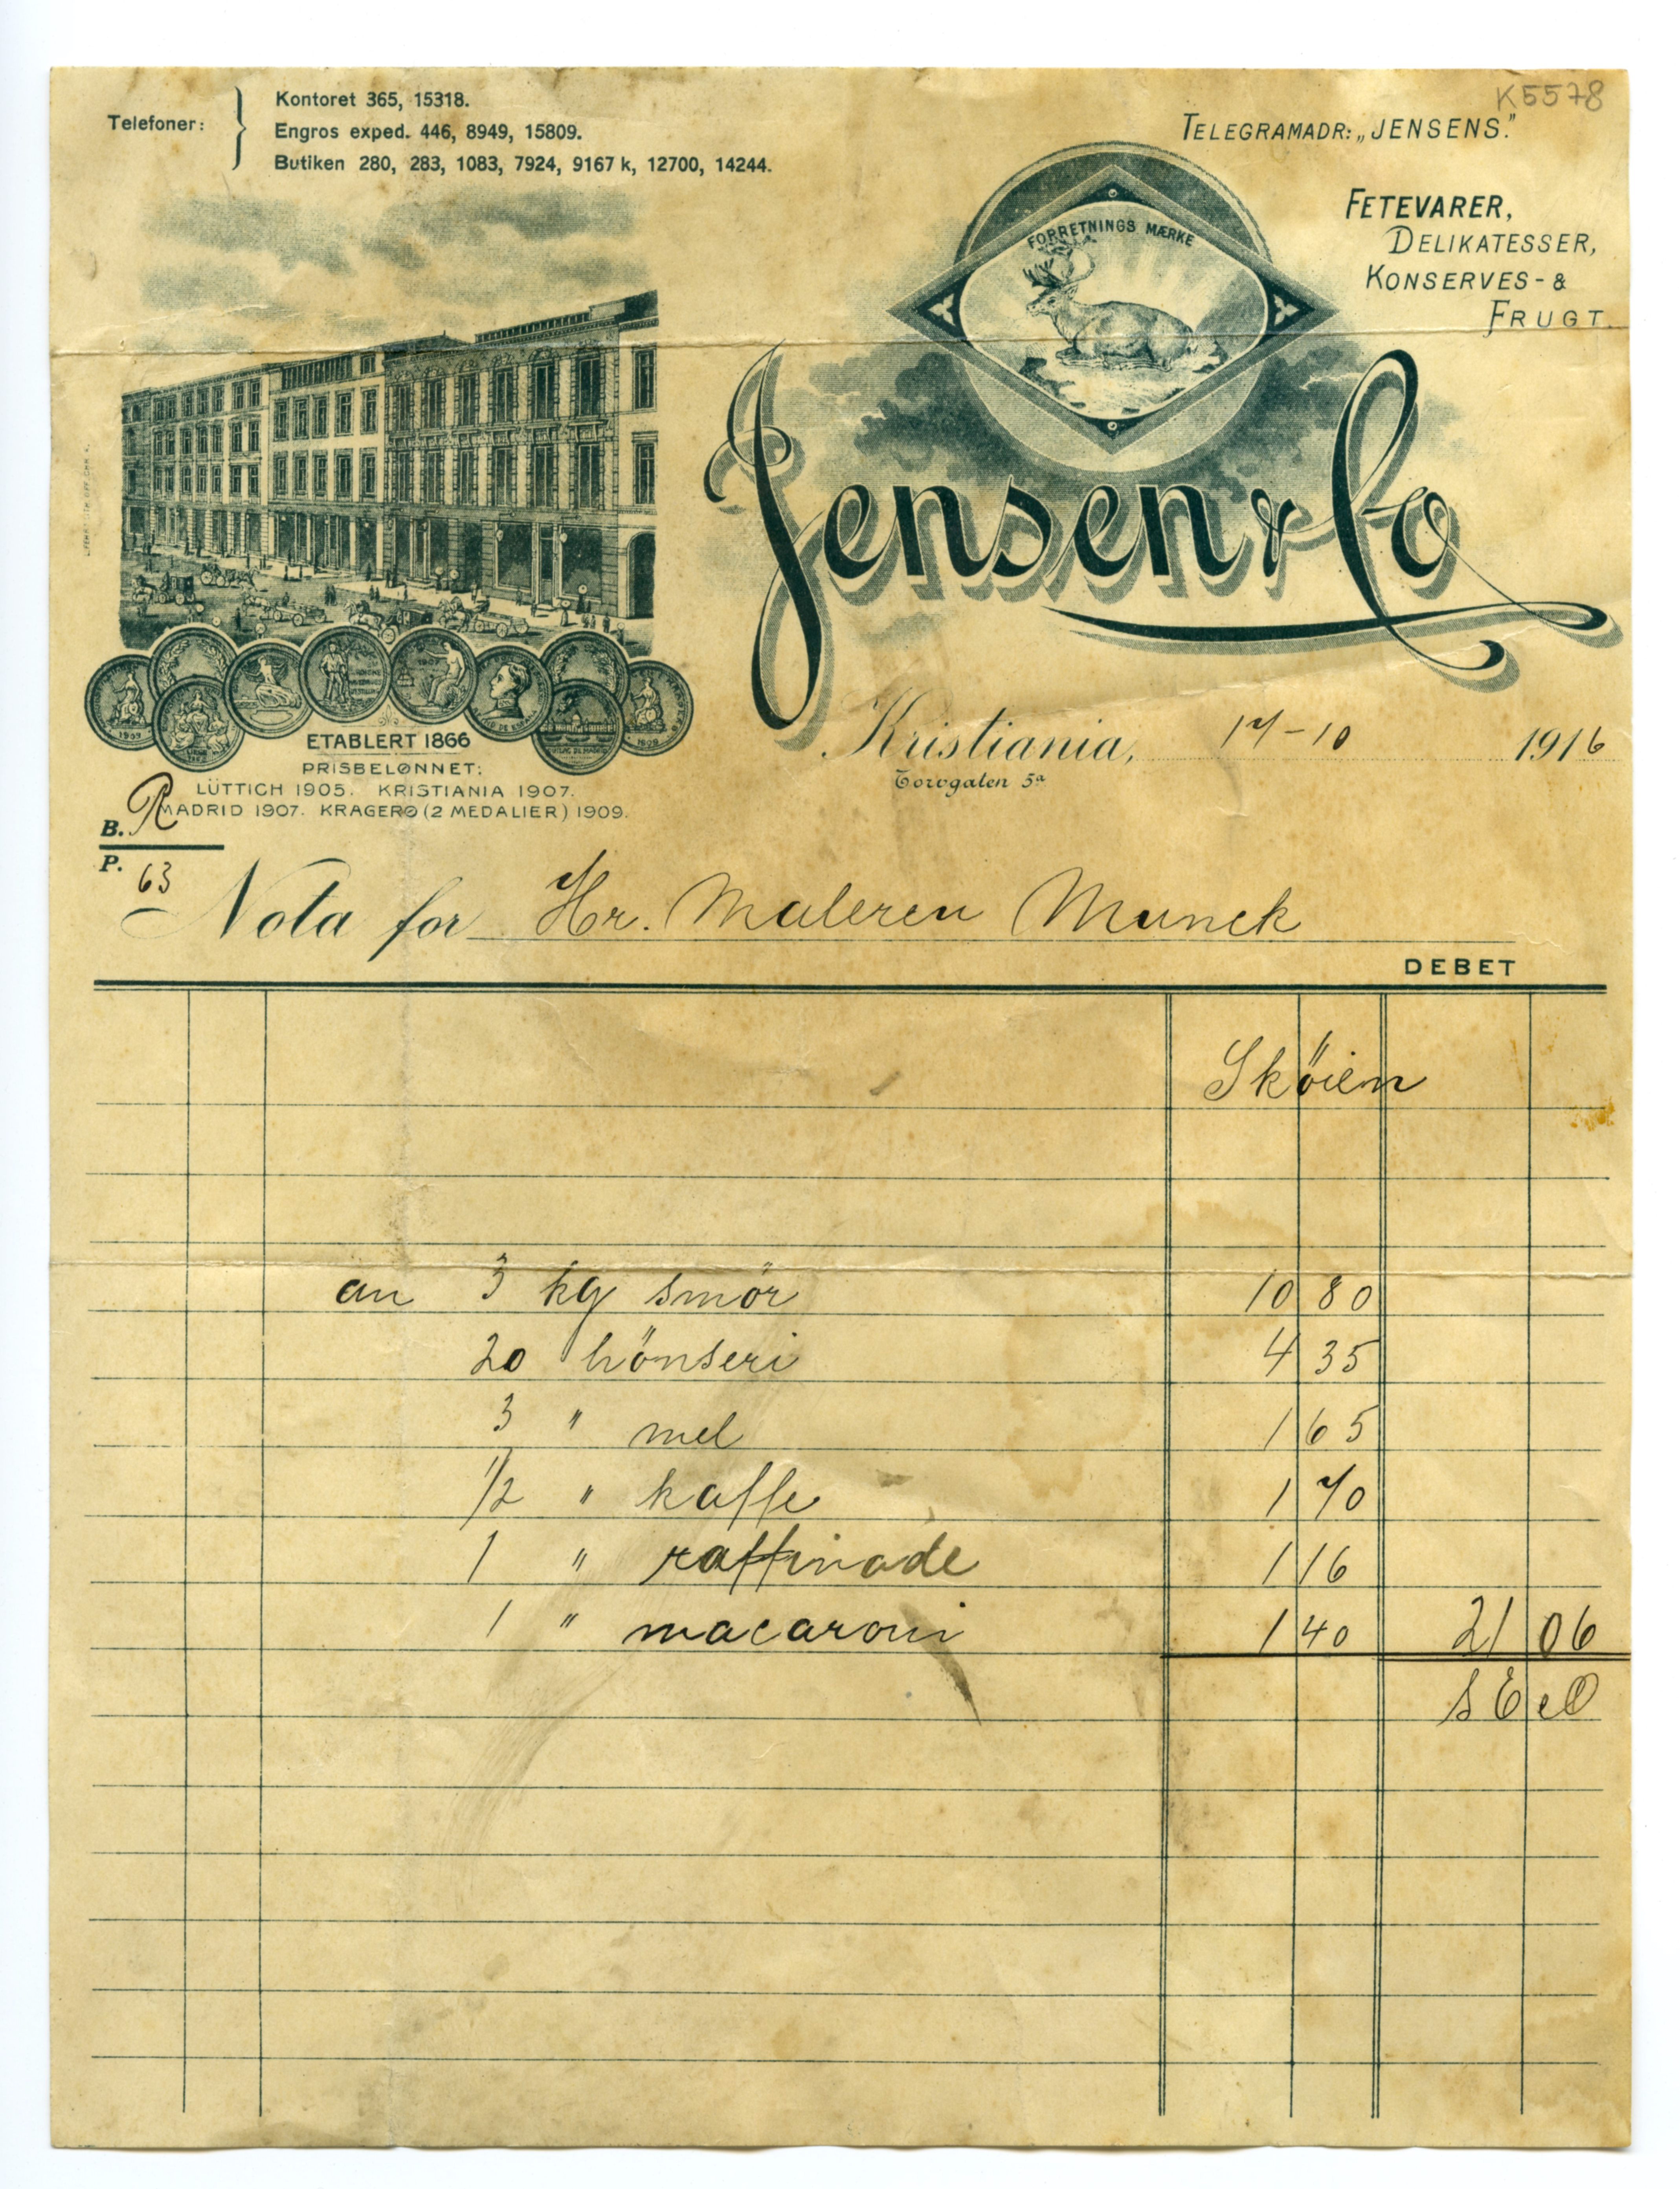 K5578
Telefoner:
Kontoret 365, 15318.
Engros exped. 446, 8949, 15809.
Butiken 280, 283, 1083, 7924, 9167 k, 12700, 14244.
TELEGRAMADR: „JENSENS."
FETEVARER,
DELIKATESSER,
KONSERVES- &
FRUGT.
FORRETNINGS MÆRKE
Jensen & Co
ETABLERT 1866
PRISBELØNNET:
LÜTTICH 1905. KRISTIANIA 1907.
MADRID 1907. KRAGERØ (2 MEDALIER) 1909.
Kristiania, 17-10 1916
Torvgaten 5a
B. R
P. 63
Nota for Hr. Maleren Munck
DEBET
Sköien
an 3 kg smör 10 80
20 hönseri 4 35
3 " mel 1 65
1/2 " kaffe 1 70
1 " raffinade 1 16
1 " macaroni 1 40 21 06
S E e O